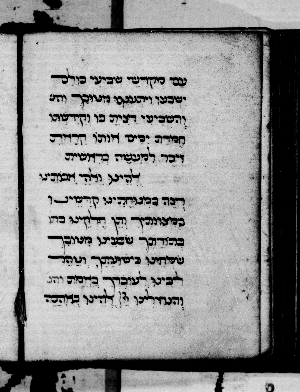 עם מקדשי שביעי כולם
ישבעו ויתענגו מטובך והש
והשביעי רצית בו וקדשתו
חמדת ימים אותו קראת
זכר למעשה בראשית
אלהינו ואלהי אבותינו
רצה במנוחתינו קדשינו
במצותיך ותן חלקינו בתו
בתורתך שבעינו מטובך
שמחינו בישועתך וטהר
לבינו לעובדך באמת והנ
והנחילינו יי אלהינו באהבה